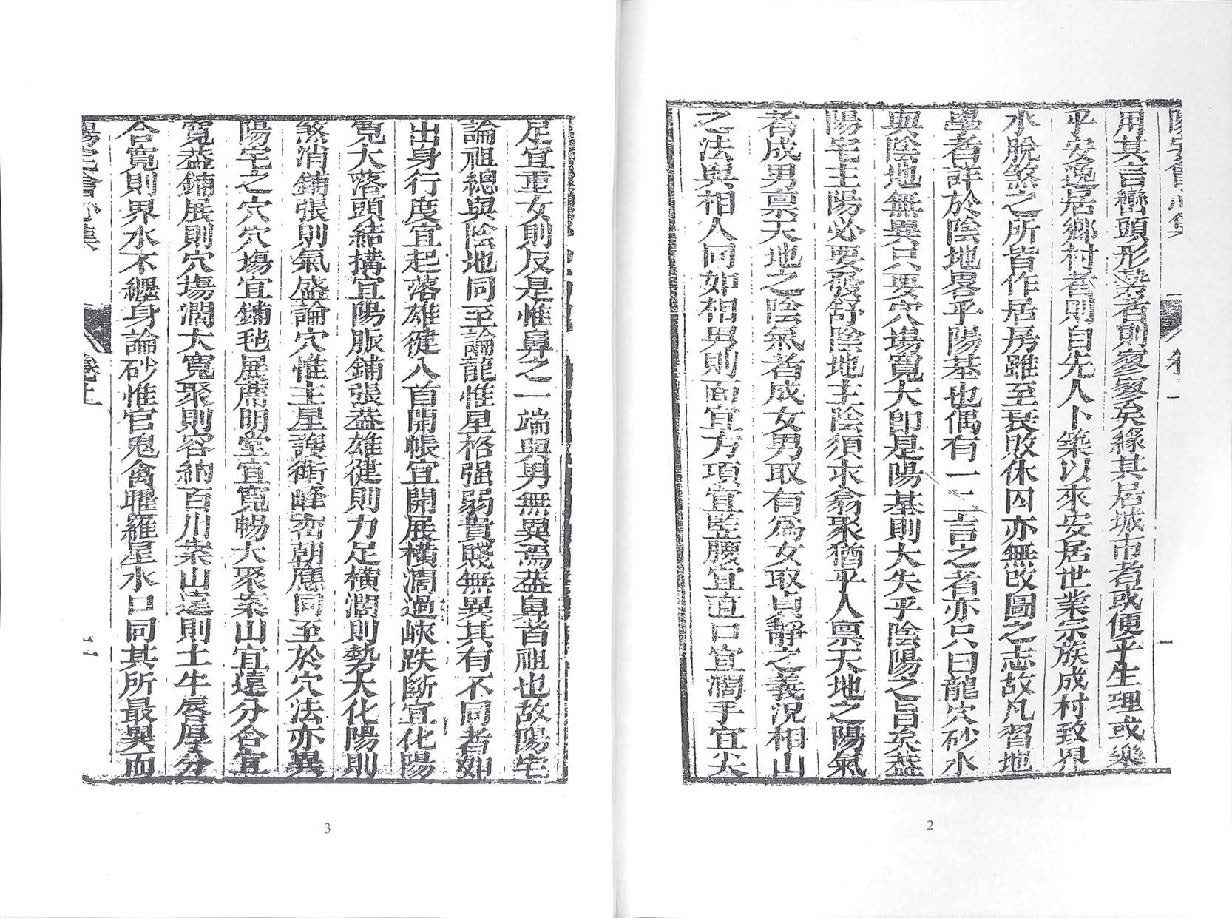 陽宅會心集 卷上 一
用其言巒頭形势者則寥寥矣緣其居城市者或便乎生理或樂
乎安逸居鄉村者則自先人卜築以來安居世業宗族成村致界
水脫煞之所皆作居房雖至衰敗休囚亦無改圖之志故凡習地
學者詳於陰地畧乎陽基也偶有一二言之者亦只曰龍穴砂水
與陰地無異只要穴場寬大即是陽基則大失乎陰陽之旨矣葢
陽宅主陽必要發舒陰地主陰須求翕聚猶乎人禀天地之陽氣
者成男禀天地之陰氣者成女男取有為女取貞靜之義況相山
之法與相人同如相男則面宜方項宜竪腰宜直口宜濶手宜尖
2
足宜重女則反是惟鼻之一端與男無異焉葢鼻者祖也故陽宅
論祖總與陰地同至論龍惟星格强弱貴賤無異其有不同者如
出身行度宜起落雄健入首開帳宜開展橫濶過峽跌斷宜化陽
寬大落頭結搆宜陽脈鋪張葢雄健則力足橫濶則勢大化陽則
煞消鋪張則氣盛論穴惟主星護衛峰巒朝應同至於穴法亦異
陽宅之穴穴塲宜鋪毡展蓆明堂宜寬暢大聚案山宜遠分合宜
寬葢鋪展則穴塲濶大寬聚則容納百川案山遠則土牛唇厚分
合寬則界水不纏身論砂惟官鬼禽曜羅星水口同其所最異而
陽宅會心集 卷上 二
3